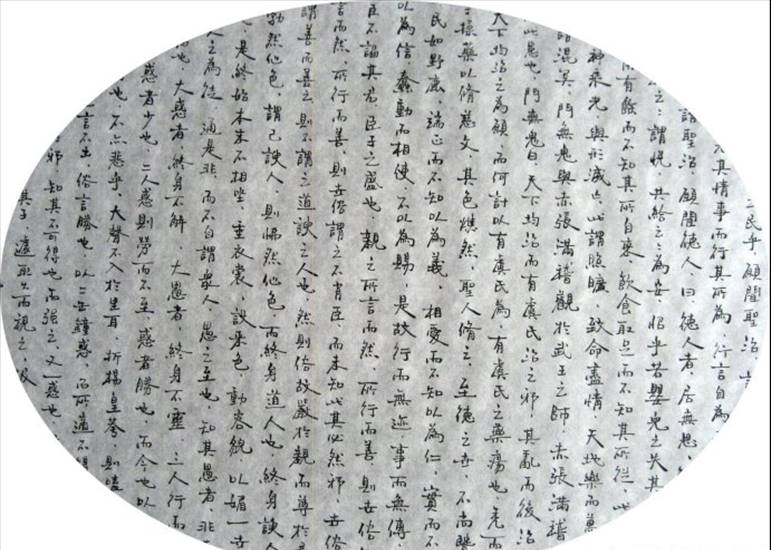 民乎，願聞聖治
其情事而行其所為，行言自為
謂聖治。願聞德人。曰：德人者，居無思，
之之謂悅，共給之之為安，怊乎若嬰兒之失其
而有餘而不知其所自來，飲食取足而不知其所從，此
神乘光，與形滅亡，此謂照曠。致命盡情，天地樂而萬
混冥。門無鬼與赤張滿稽觀於武王之師，赤張滿稽
此患也。門無鬼曰：天下均治而有虞氏治之邪？其亂而後治
天下均治之為願，而何計以有虞氏為，有虞氏之藥瘍也，禿而
操藥以脩慈父，其色燋然，聖人之。至德之世，不尚賢
民如野鹿，端正而不知以為義，相愛而不知以為仁，實而不
以為信，蠢動而相使，不以為賜，是故行而無迹，事而無傳
臣不諂其君，臣子之盛也。親之所言而然，所行而善，則世俗
言而然，所行而善，則世俗謂之不肖臣。而未知此其必然邪？世俗
謂善而善之，則不謂之道諛之人也。然則俗故嚴於親而尊於
勃然作色，謂己諛人，則怫然作色，而終身道人也，終身諛人
是終始本末不相坐。垂衣裳，設采色，動容貌，以媚一世
人之為徒，通是非，而不自謂眾人，愚之至也。知其愚者，非
也。大惑者，終身不解，大愚者，終身不靈。三人行而
惑者少也，二人惑則勞而不至，惑者勝也。而今也以
也。不亦悲乎，大聲不入於里耳，折楊皇荂，則嗑
言不出，俗言勝也。以二缶鐘惑，而所適不得
邪，知其不可得也而強之，又一惑也
其子，遽取火而視之，汲